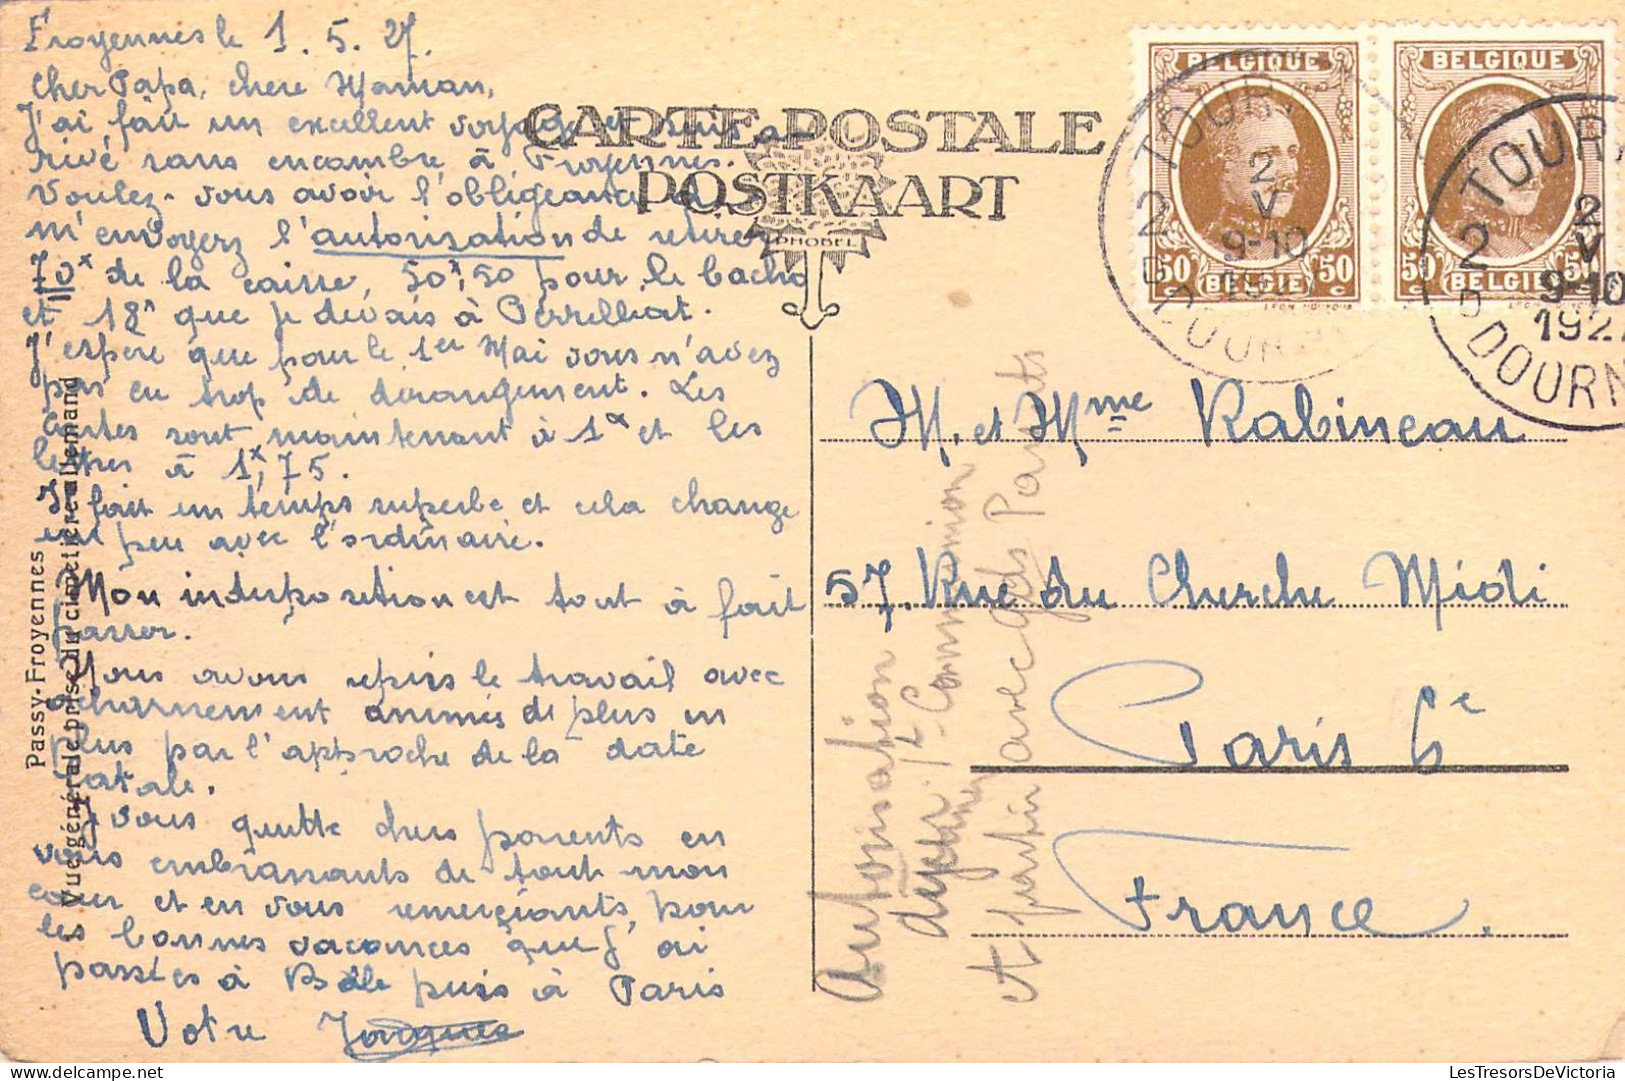 Froyennes le 1.5.27.
Cher Papa, chère Maman,
J'ai fait un excellent voyage et suis ar-
rivé sans encombre à Froyennes.
Voulez-vous avoir l'obligeance de
m'envoyerz l'autorisation de retirer
70x de la caisse, 50x,50 pour le bacho
et 18x que je devais à
J'espère que pour le 1er Mai vous n'avez
pas eu trop de dérangement. Les
Cartes sont maintenant à 1x et les
lettres à 1x,75.
Il fait un temps superbe et cela change
un peu avec l'ordinaire.
Mon indisposition est tout à fait
passer.
Nous avons repris le travail avec
acharnement animés de plus en
plus par l'approche de la date
fatale.
Je vous quitte chers parents en
vous embrassants de tout mon
cœur et en vous remerciants, pour
les bonnes vacances que j'ai
passées à Bâle puis à Paris
Votre Jacques
Passy-Froyennes
Vue générale prise du cimetière allemand
CARTE POSTALE
POSTKAART
PHOBEL
BELGIQUE
50 BELGIE 50
BELGIQUE
50 BELGIE 50
TOUR
2
2
V
9-10
19
DOORN
TOURN
2
2
V
9-10
1927
DOORN
M. et Mme Rabineau
57. Rue du Cherche Midi
Paris 6e
France.
Autorisation
1re Communion
A partir avec Gds Parents
LesTresorsDeVictoria